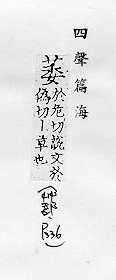 四聲篇海
萎於危切說文於
偽切一草也